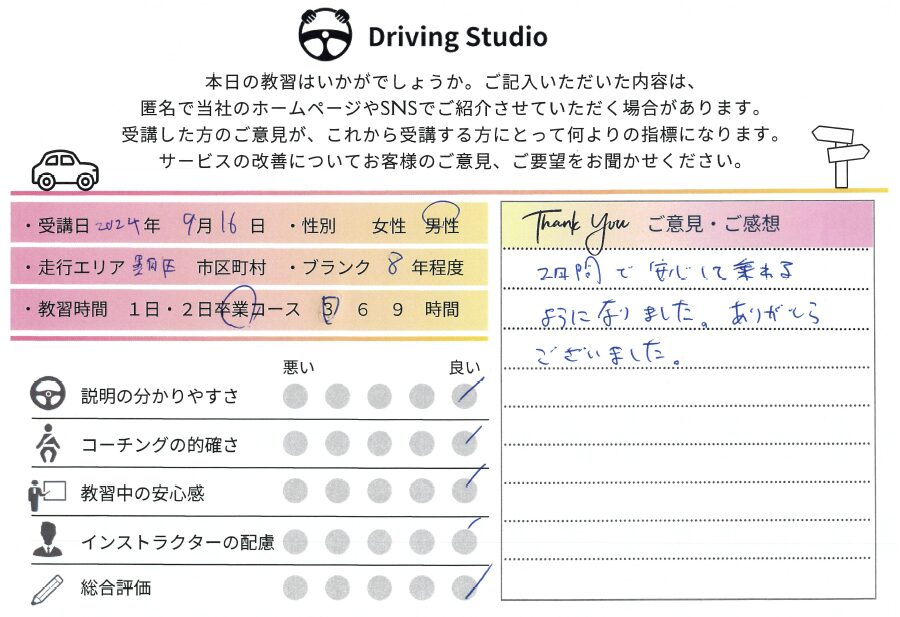 Driving Studio
本日の教習はいかがでしょうか。ご記入いただいた内容は、
匿名で当社のホームページやSNSでご紹介させていただく場合があります。
受講した方のご意見が、これから受講する方にとって何よりの指標になります。
サービスの改善についてお客様のご意見、ご要望をお聞かせください。
・受講日 2024年 9月 16日 ・性別 女性 男性
・走行エリア 墨田区 市区町村 ・ブランク 8 年程度
・教習時間 1日・2日卒業コース 3 6 9 時間
悪い 良い
説明の分かりやすさ
コーチングの的確さ
教習中の安心感
インストラクターの配慮
総合評価
Thank You ご意見・ご感想
2日間で安心して乗れる
ようになりました。ありがとう
ございました。